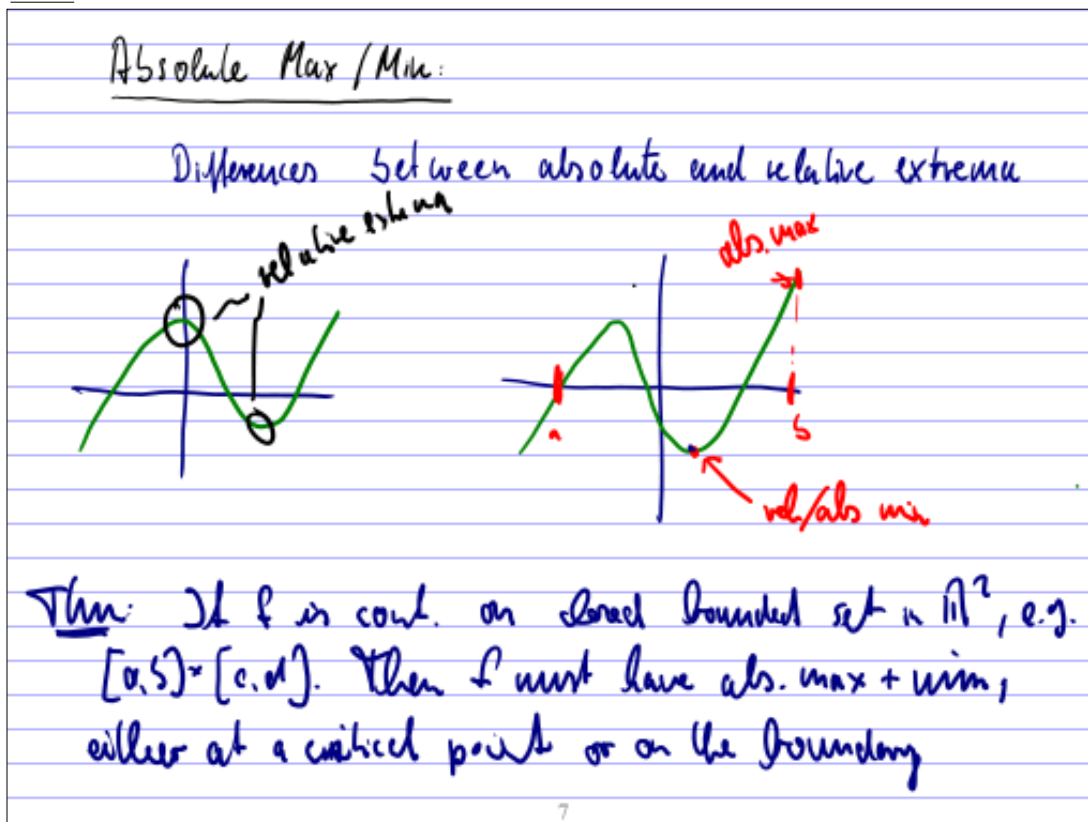 Absolute Max / Min:
Differences between absolute and relative extrema
relative extrema
abs. max
a
b
rel/abs min
Thm: If f is cont. on closed bounded set in ℝ², e.g.
[a,b]×[c,d]. Then f must have abs. max + min,
either at a critical point or on the boundary
7